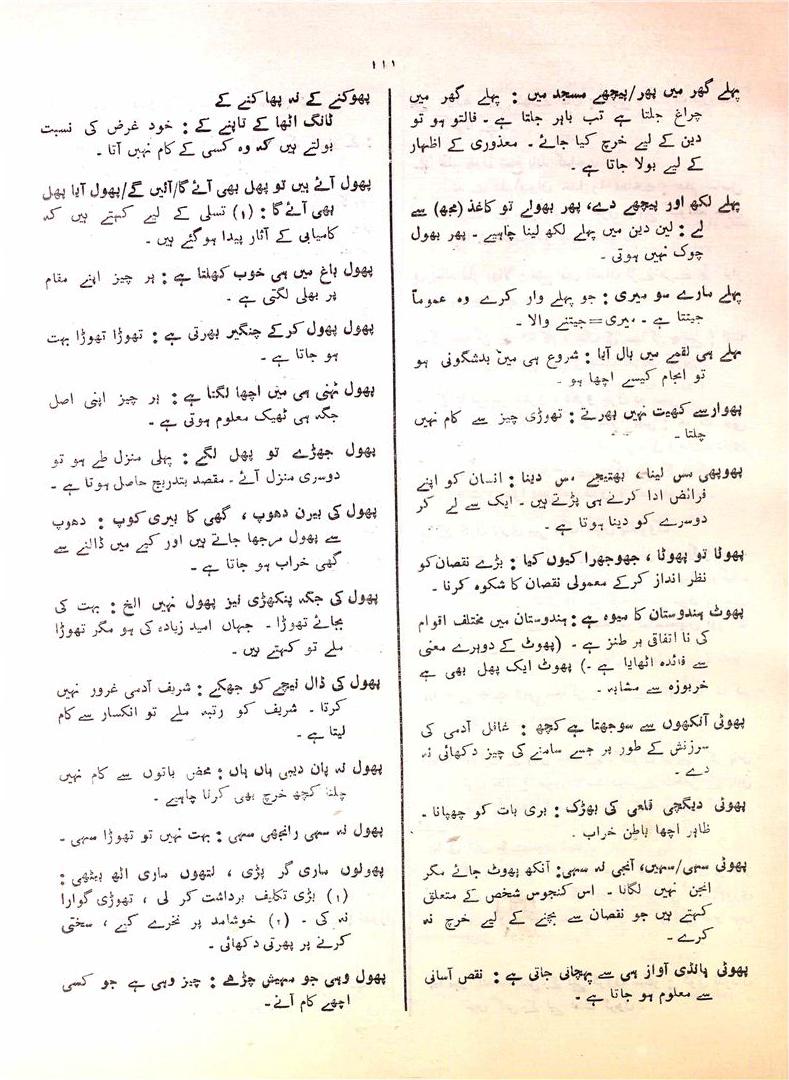 ۱۱۱
پہلے گھر میں پھر/پیچھے مسجد میں : پہلے گھر میں
چراغ جلتا ہے تب باہر جلتا ہے ۔ فالتو ہو تو
دین کے لیے خرچ کیا جائے ۔ معذوری کے اظہار
کے لیے بولا جاتا ہے ۔
پہلے لکھ اور پیچھے دے، پھر بھولے تو کاغذ (مجھ) سے
لے : لین دین میں پہلے لکھ لینا چاہیے ۔ پھر بھول
چوک نہیں ہوتی ۔
پہلے مارے سو میری : جو پہلے وار کرے وہ عموماً
جیتتا ہے ۔ میری=جیتنے والا ۔
پہلے ہی لقمے میں بال آیا : شروع ہی میں بدشگونی ہو
تو انجام کیسے اچھا ہو ۔
پھوار سے کھیت نہیں بھرتے : تھوڑی چیز سے کام نہیں
چلتا ۔
پھوپھی مس لینا ، بھتیجے مس دینا : انسان کو اپنے
فرائض ادا کرنے ہی پڑتے ہیں ۔ ایک سے لے کر
دوسرے کو دینا ہوتا ہے ۔
پھوٹا تو پھوٹا ، جھوجھرا کیوں کیا : بڑے نقصان کو
نظر انداز کرکے معمولی نقصان کا شکوہ کرنا ۔
پھوٹ ہندوستان کا میوہ ہے : ہندوستان میں مختلف اقوام
کی نا اتفاقی پر طنز ہے ۔ (پھوٹ کے دوہرے معنی
سے فائدہ اٹھایا ہے ۔) پھوٹ ایک پھل بھی ہے
خربوزہ سے مشابہ ۔
پھوٹی آنکھوں سے سوجھتا ہے کچھ : غافل آدمی کی
سرزنش کے طور پر جسے سامنے کی چیز دکھائی نہ
دے ۔
پھوٹی دیگچی قلعی کی بھڑک : بری بات کو چھپانا ۔
ظاہر اچھا باطن خراب ۔
پھوٹی سہی/سہیں، آنجی نہ سہی: آنکھ پھوٹ جائے مگر
انجن نہیں لگانا ۔ اس کنجوس شخص کے متعلق
کہتے ہیں جو نقصان سے بچنے کے لیے خرچ نہ
کرے ۔
پھوٹی ہانڈی آواز ہی سے پہچانی جاتی ہے : نقص آسانی
سے معلوم ہو جاتا ہے ۔
پھوکنے کے نہ پھاکنے کے
ٹانگ اٹھا کے تاپنے کے : خود غرض کی نسبت
بولتے ہیں کہ وہ کسی کے کام نہیں آتا ۔
پھول آئے ہیں تو پھل بھی آئے گا/آئیں گے/پھول آیا پھل
بھی آئے گا : (۱) تسلی کے لیے کہتے ہیں کہ
کامیابی کے آثار پیدا ہو گئے ہیں ۔
پھول باغ میں ہی خوب کھلتا ہے : ہر چیز اپنے مقام
پر بھلی لگتی ہے ۔
پھول پھول کرکے چنگیر بھرتی ہے : تھوڑا تھوڑا بہت
ہو جاتا ہے ۔
پھول ٹہنی ہی میں اچھا لگتا ہے : ہر چیز اپنی اصل
جگہ ہی ٹھیک معلوم ہوتی ہے ۔
پھول جھڑے تو پھل لگے : پہلی منزل طے ہو تو
دوسری منزل آئے ۔ مقصد بتدریج حاصل ہوتا ہے ۔
پھول کی بیرن دھوپ ، گھی کا بیری کوپ : دھوپ
سے پھول مرجھا جاتے ہیں اور کپے میں ڈالنے سے
گھی خراب ہو جاتا ہے ۔
پھول کی جگہ پنکھڑی نیز پھول نہیں الخ : بہت کی
بجائے تھوڑا ۔ جہاں امید زیادہ کی ہو مگر تھوڑا
ملے تو کہتے ہیں ۔
پھول کی ڈال نیچے کو جھکے : شریف آدمی غرور نہیں
کرتا ۔ شریف کو رتبہ ملے تو انکسار سے کام
لیتا ہے ۔
پھول نہ پان دیبی ہاں ہاں : محض باتوں سے کام نہیں
چلتا کچھ خرچ بھی کرنا چاہیے ۔
پھول نہ سہی رانجھی سہی : بہت نہیں تو تھوڑا سہی ۔
پھولوں ماری گر پڑی ، لتھوں ماری اٹھ بیٹھی :
(۱) بڑی تکلیف برداشت کر لی ، تھوڑی گوارا
نہ کی ۔ (۲) خوشامد پر نخرے کیے ، سختی
کرنے پر پھرتی دکھائی ۔
پھول وہی جو مہیش چڑھے : چیز وہی ہے جو کسی
اچھے کام آئے ۔